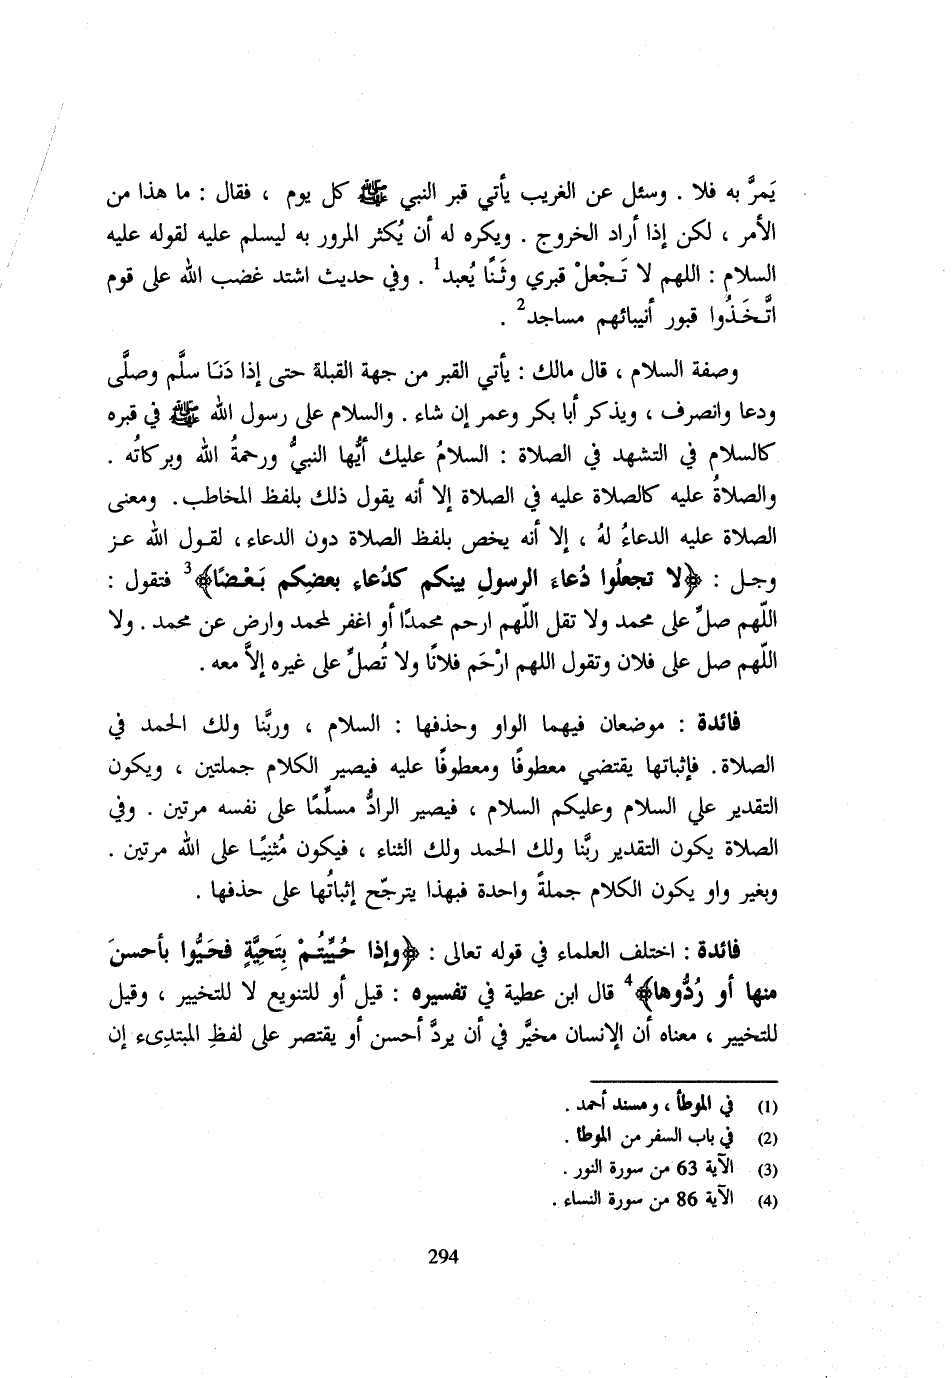 يَمرَّ به فلا . وسئل عن الغريب يأتي قبر النبي ﷺ كل يوم ، فقال : ما هذا من
الأمر ، لكن إذا أراد الخروج . ويكره له أن يُكثر المرور به ليسلم عليه لقوله عليه
السلام : اللهم لا تَجْعلْ قبري وثَنًا يُعبد1 . وفي حديث اشتد غضب الله على قوم
اتَّخَذُوا قبور أنبيائهم مساجد2 .
وصفة السلام ، قال مالك : يأتي القبر من جهة القبلة حتى إذا دَنَا سلَّم وصلَّى
ودعا وانصرف ، ويذكر أبا بكر وعمر إن شاء . والسلام على رسول الله ﷺ في قبره
كالسلام في التشهد في الصلاة : السلامُ عليك أيُّها النبيُّ ورحمةُ الله وبركاتُه .
والصلاةُ عليه كالصلاة عليه في الصلاة إلا أنه يقول ذلك بلفظ المخاطب. ومعنى
الصلاة عليه الدعاءُ لهُ ، إلا أنه يخص بلفظ الصلاة دون الدعاء، لقول الله عز
وجل : ﴿لا تجعلُوا دُعاء الرسولِ بينكم كدُعاء بعضِكم بَعْضًا﴾3 فتقول :
اللّهم صلِّ على محمد ولا تقل اللّهم ارحم محمدًا أو اغفر لمحمد وارض عن محمد . ولا
اللّهم صل على فلان وتقول اللهم ارْحَم فلانًا ولا تُصلِّ على غيره إلاَّ معه .
فائدة : موضعان فيهما الواو وحذفها : السلام ، وربَّنا ولك الحمد في
الصلاة. فإثباتها يقتضي معطوفًا ومعطوفًا عليه فيصير الكلام جملتين ، ويكون
التقدير علي السلام وعليكم السلام ، فيصير الرادُّ مسلِّمًا على نفسه مرتين . وفي
الصلاة يكون التقدير ربَّنا ولك الحمد ولك الثناء ، فيكون مُثنِيًا على الله مرتين .
وبغير واو يكون الكلام جملةً واحدة فبهذا يترجّح إثباتُها على حذفها .
فائدة : اختلف العلماء في قوله تعالى : ﴿وإذا حُيِّيتُمْ بِتَحِيَّةٍ فحَيُّوا بأحسنَ
منها أو رُدُّوها﴾4 قال ابن عطية في تفسيره : قيل أو للتنويع لا للتخيير ، وقيل
للتخيير ، معناه أن الإنسان مخيَّر في أن يردَّ أحسن أو يقتصر على لفظِ المبتدِىء إن
(1) في الموطأ ، ومسند أحمد .
(2) في باب السفر من الموطا .
(3) الآية 63 من سورة النور .
(4) الآية 86 من سورة النساء .
294